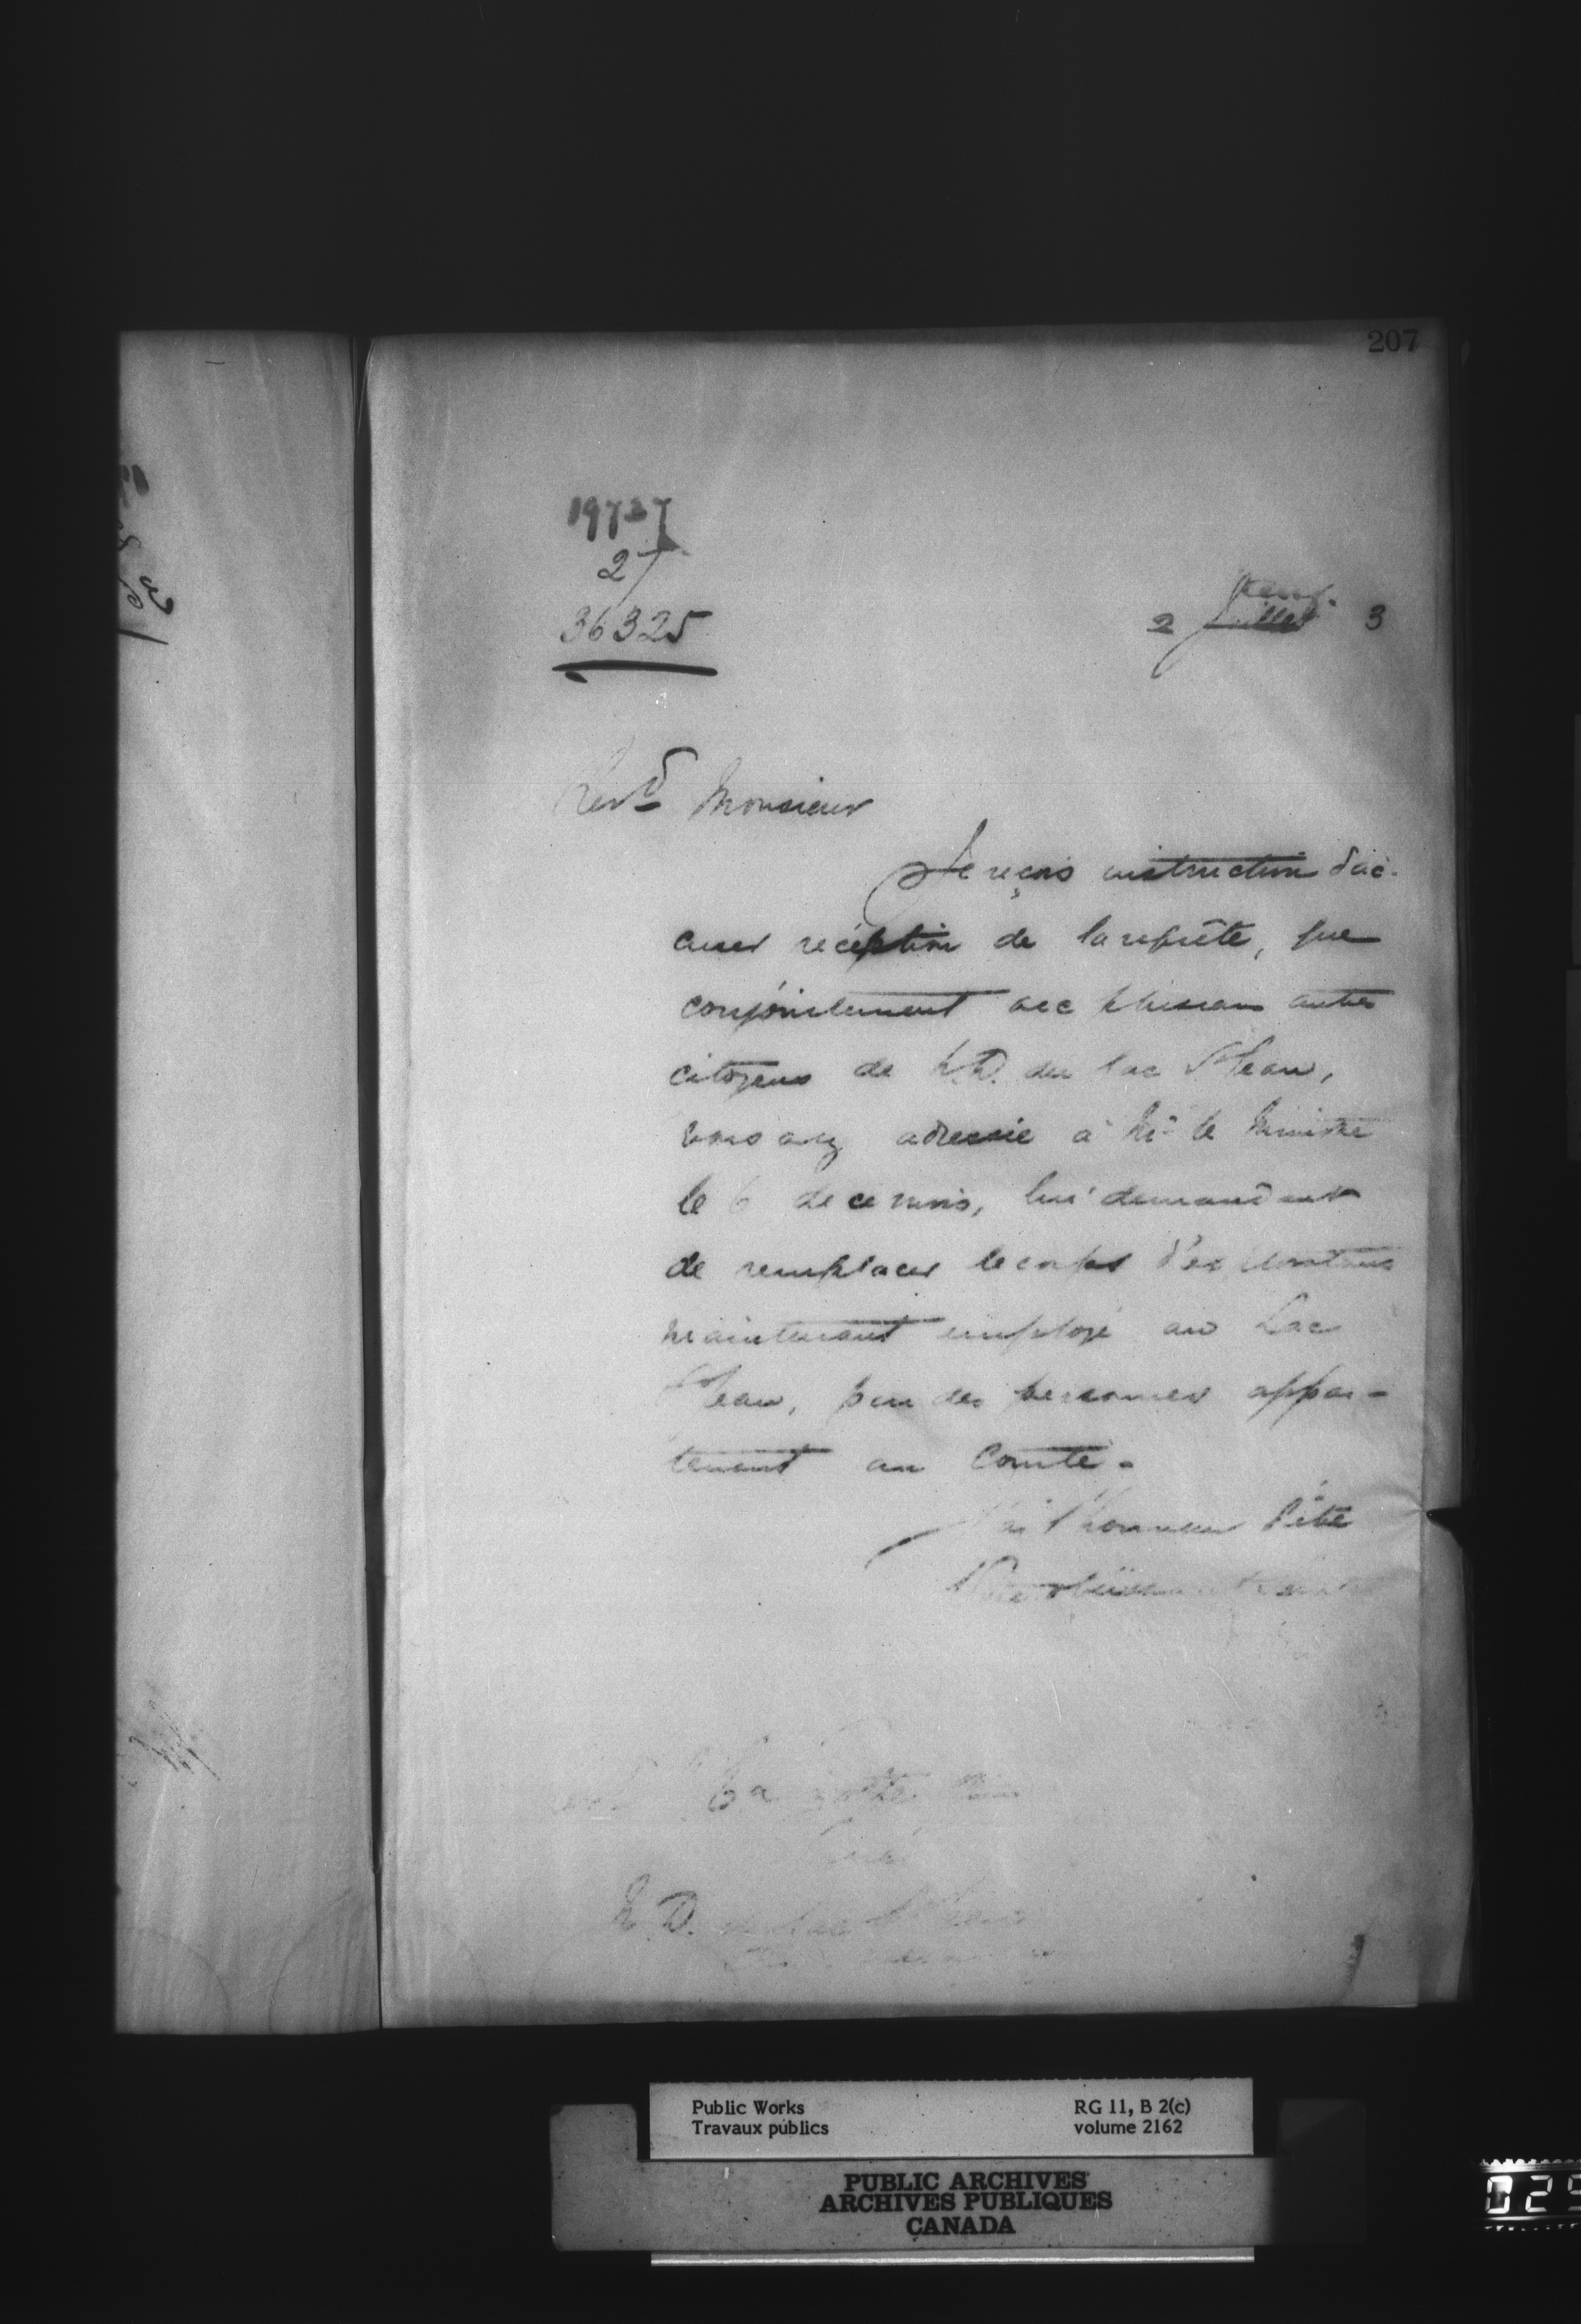 207
19727
27
36325
2 Juillet 3
Revd Monsieur
Je reçois instruction d'ac-
cuser réception de la requête, que
conjointement avec plusieurs autres
citoyens de N.D. du lac St Jean,
vous avez adressée à Mr le Ministre
le 6 de ce mois, lui demandant
de remplacer le corps d'explorateurs
maintenant employé au Lac
St Jean, par des personnes appar-
tenant au Comté.
J'ai l'honneur d'être
N.D. du Lac St Jean
Public Works
Travaux publics
RG 11, B 2(c)
volume 2162
PUBLIC ARCHIVES
ARCHIVES PUBLIQUES
CANADA
029